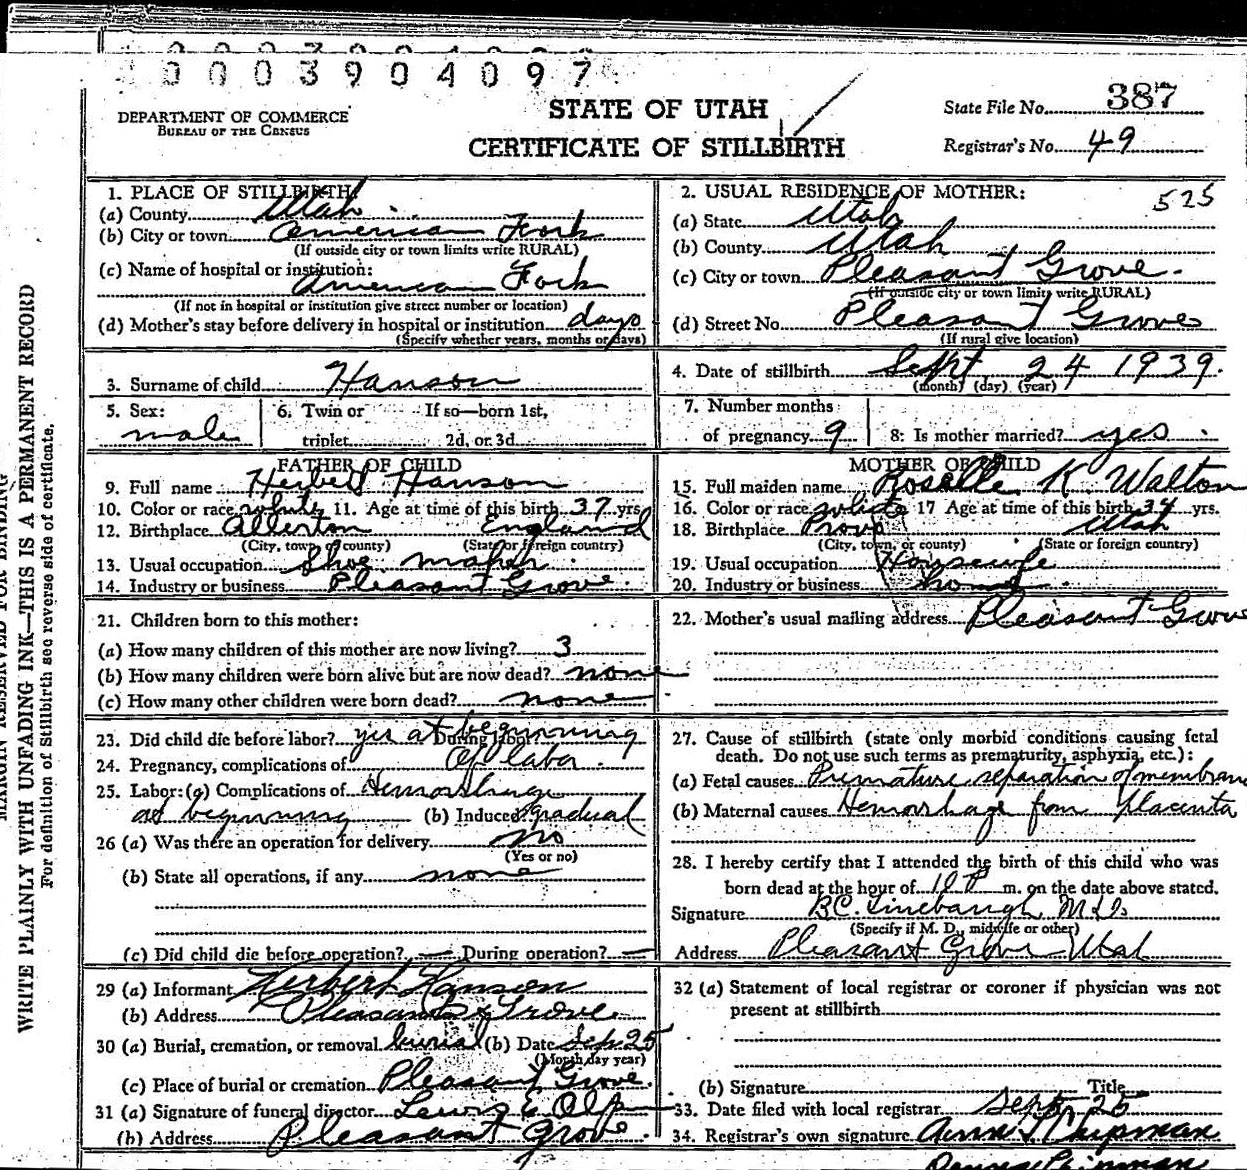 0003904097
DEPARTMENT OF COMMERCE
BUREAU OF THE CENSUS
STATE OF UTAH
CERTIFICATE OF STILLBIRTH
State File No. 387
Registrar's No. 49
WRITE PLAINLY WITH UNFADING INK—THIS IS A PERMANENT RECORD
For definition of Stillbirth see reverse side of certificate.
1. PLACE OF STILLBIRTH:
(a) County Utah
(b) City or town American Fork
(If outside city or town limits write RURAL)
(c) Name of hospital or institution:
American Fork
(If not in hospital or institution give street number or location)
(d) Mother's stay before delivery in hospital or institution days
(Specify whether years, months or days)
2. USUAL RESIDENCE OF MOTHER: 525
(a) State Utah
(b) County Utah
(c) City or town Pleasant Grove
(If outside city or town limits write RURAL)
(d) Street No. Pleasant Grove
(If rural give location)
3. Surname of child Hanson
4. Date of stillbirth Sept 24 1939.
(month) (day) (year)
5. Sex: male
6. Twin or triplet If so—born 1st, 2d, or 3d
7. Number months of pregnancy 9
8: Is mother married? yes
FATHER OF CHILD
9. Full name Herbert Hanson
10. Color or race white 11. Age at time of this birth 37 yrs.
12. Birthplace Allerton England
(City, town or county) (State or foreign country)
13. Usual occupation Shoe
14. Industry or business Pleasant Grove
MOTHER OF CHILD
15. Full maiden name Roselle K. Walton
16. Color or race white 17 Age at time of this birth 34 yrs.
18. Birthplace Provo Utah
(City, town, or county) (State or foreign country)
19. Usual occupation Housewife
20. Industry or business home
21. Children born to this mother:
(a) How many children of this mother are now living? 3
(b) How many children were born alive but are now dead? none
(c) How many other children were born dead? none
22. Mother's usual mailing address Pleasant Grove
23. Did child die before labor? yes at beginning During labor?
24. Pregnancy, complications of Of labor.
25. Labor: (a) Complications of Hemorrhage
at beginning (b) Induced? gradual
26 (a) Was there an operation for delivery no
(Yes or no)
(b) State all operations, if any none
(c) Did child die before operation? — During operation? —
27. Cause of stillbirth (state only morbid conditions causing fetal
death. Do not use such terms as prematurity, asphyxia, etc.):
(a) Fetal causes Premature separation of membrane
(b) Maternal causes Hemorrhage from placenta
28. I hereby certify that I attended the birth of this child who was
born dead at the hour of 10 P m. on the date above stated.
Signature B.C. Linebaugh M.D.
(Specify if M. D., midwife or other)
Address Pleasant Grove Utah
29 (a) Informant Herbert Hanson
(b) Address Pleasant Grove
30 (a) Burial, cremation, or removal burial (b) Date Sep. 25
(Month day year)
(c) Place of burial or cremation Pleasant Grove.
31 (a) Signature of funeral director Lewis E Olp
(b) Address Pleasant Grove
32 (a) Statement of local registrar or coroner if physician was not
present at stillbirth
(b) Signature Title
33. Date filed with local registrar Sept. 25
34. Registrar's own signature Chipman